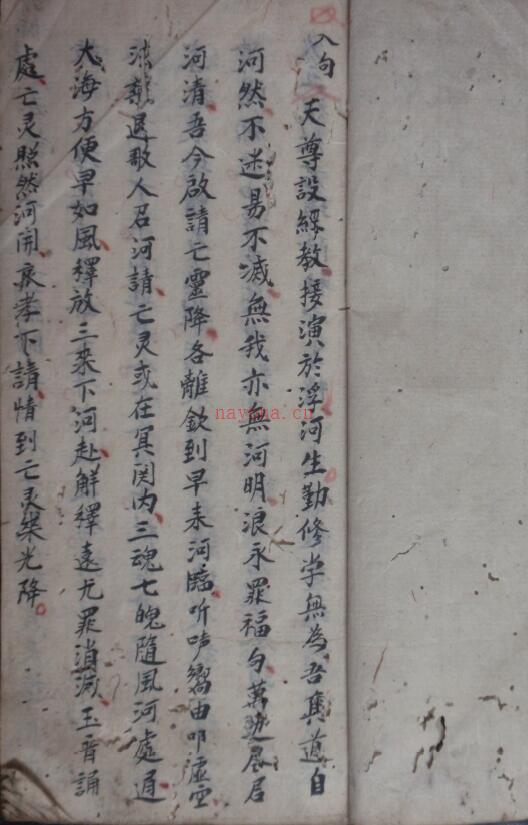 入句
天尊設經教接演於浮河生勤修学無為吾真道自
河然不迷易不滅無我亦無河明浪永罪福句萬延尽居
河清吾今啟請亡靈降各離欽到早来河臨听声嚮由叩虚空
退歌人召河請亡灵或在冥関内三魂七魄隨風河處通
大海方便早如風釋放三来下河赴解釋遠尤罪消滅玉音誦
處亡灵照然河開哀孝下請情到亡灵楽光降
nayona.cn